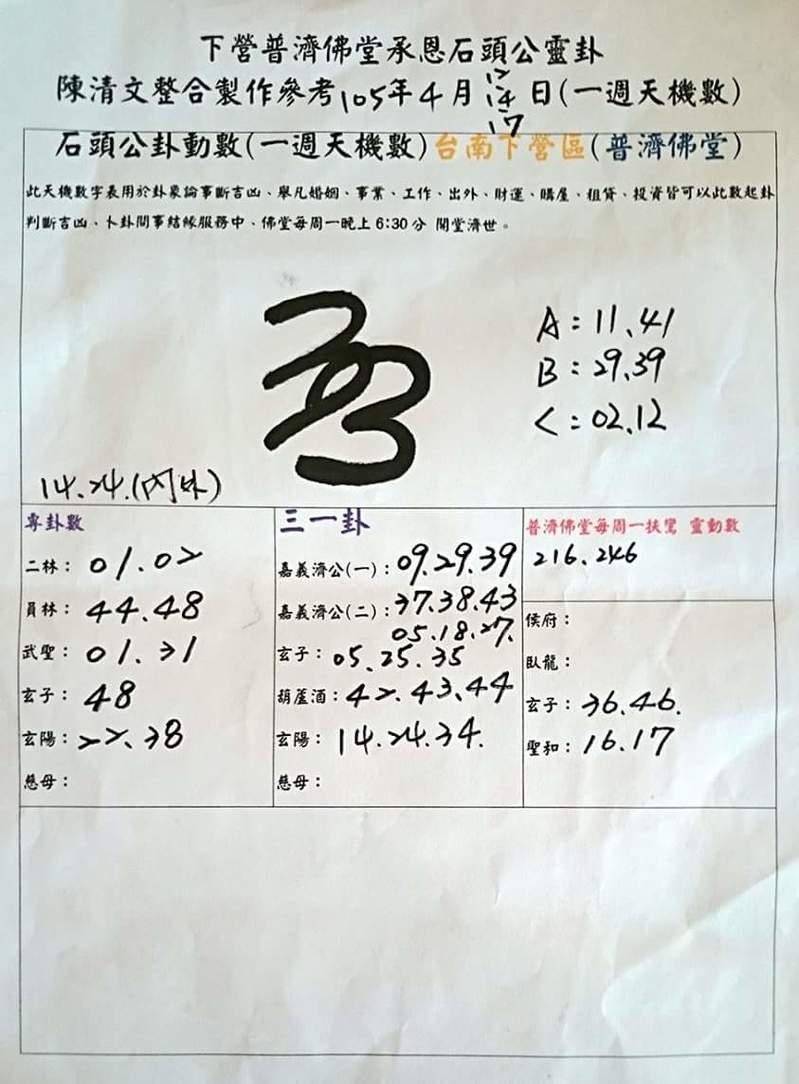 下營普濟佛堂承恩石頭公靈卦
陳清文整合製作參考105年4月12.14.17日(一週天機數)
石頭公卦動數(一週天機數)台南下營區(普濟佛堂)
此天機數字表用於卦象論事斷吉凶、舉凡婚姻、事業、工作、出外、財運、購屋、租貸、投資皆可以此數起卦
判斷吉凶、卜卦問事結緣服務中、佛堂每周一晚上6:30分 開堂濟世。
A:11.41
B:29.39
C:02.12
14.24.(內外)
專卦數
二林:01.02
員林:44.48
武聖:01.31
玄子:48
玄陽:22.38
慈母:
三一卦
嘉義濟公(一):09.29.39
嘉義濟公(二):37.38.43
05.18.27.
玄子:05.25.35
葫蘆酒:42.43.44
玄陽:14.24.34.
慈母:
普濟佛堂每周一扶鸞 靈動數
216.246
侯府:
臥龍:
玄子:36.46.
聖和:16.17